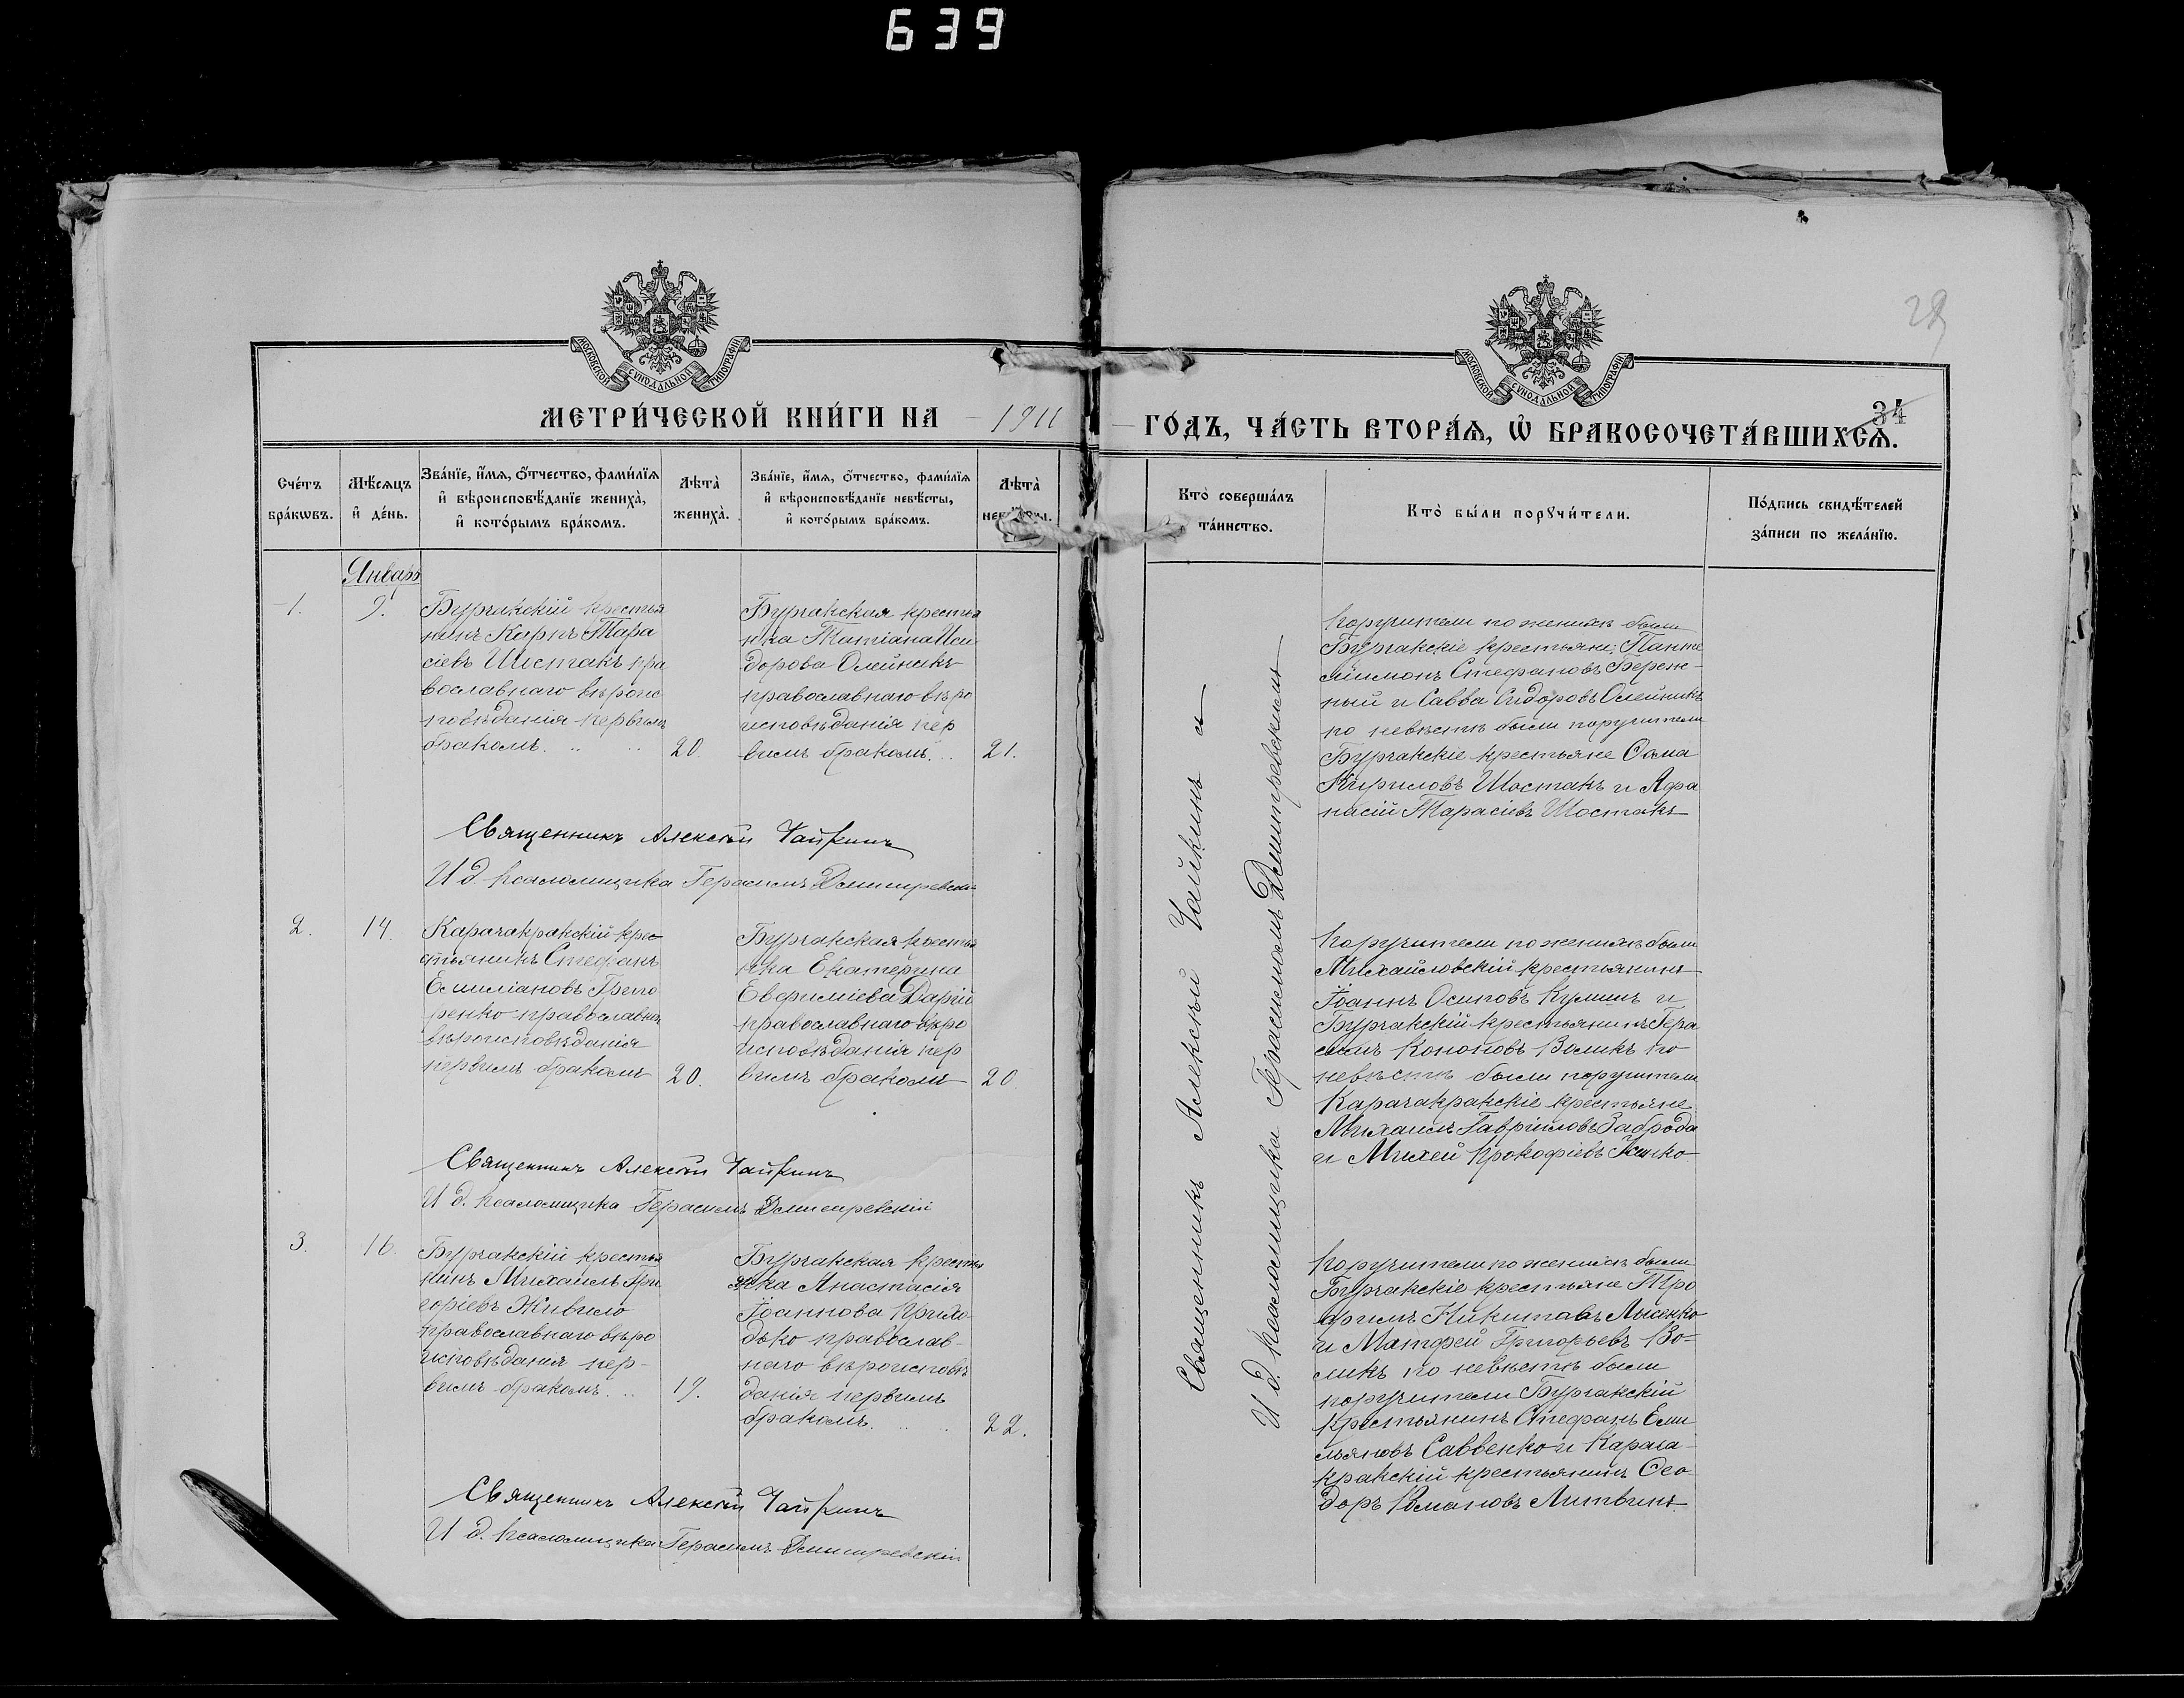 639
28
34
МОСКОВСКОЙ СѴНОДАЛЬНОЙ ТИПОГРАФІИ
МОСКОВСКОЙ СѴНОДАЛЬНОЙ ТИПОГРАФІИ
МЕТРИ́ЧЕСКОЙ КНИ́ГИ НА 1911 ГО́ДЪ, ЧА́СТЬ ВТОРА́Ѧ, Ѡ БРАКОСОЧЕТА́ВШИХСѦ.
Сче́тъ
бра́кѡвъ.
Мѣ́сѧцъ
и҆ де́нь.
Зва́нїе, и҆́мѧ, ѻ҆́тчество, фами́лїѧ
и҆ вѣроисповѣ́данїе жениха̀,
и҆ кото́рымъ бра́комъ.
Лѣта̀
жениха̀.
Зва́нїе, и҆́мѧ, ѻ҆́тчество, фами́лїѧ
и҆ вѣроисповѣ́данїе невѣ́сты,
и҆ кото́рымъ бра́комъ.
Лѣта̀
невѣ́сты.
Кто̀ соверша́лъ
та́инство.
Кто̀ бы́ли порꙋчи́тели.
По́дпись свидѣ́телей
за́писи по жела́нїю.
Январь
1.
9.
Бурчакскій крестья
нинъ Карпъ Тара
сіевъ Шостакъ пра
вославнаго вѣроис
повѣданія первымъ
бракомъ.
20
Бурчакская крестья
нка Татіана Иси
дорова Олейникъ
православнаго вѣро
исповѣданія пер
вымъ бракомъ.
21.
Поручители по женихѣ были
Бурчакскіе крестьяне: Панте
лиимонъ Стефановъ Береж-
ный и Савва Сидоровъ Олейникъ
по невѣстѣ были поручители
Бурчакскіе крестьяне Ѳома
Кириловъ Шостакъ и Афа
насій Тарасіевъ Шостакъ
Священникъ Алексѣй Чайкинъ
И д. псаломщика Герасимъ Дмитревскій
2.
14.
Карачакракскій крес
тьянинъ Стефанъ
Емиліановъ Григо
ренко православнаго
вѣроисповѣданія
первымъ бракомъ
20.
Бурчакская крестья
нка Екатерина
Евфиміева Дарій
православнаго вѣро
исповѣданія пер
вымъ бракомъ
20
Поручители по женихѣ были
Михайловскій крестьянинъ
Іоаннъ Осиповъ и
Бурчакскій крестьянинъ Гера
симъ Кононовъ Воликъ по
невѣстѣ были поручители
Карачакракскіе крестьяне
Михаилъ Гавриловъ Заброда
и Михей Прокофіевъ
Священникъ Алексѣй Чайкинъ
И д. псаломщика Герасимъ Дмитревскій
3.
16.
Бурчакскій крестья
нинъ Михаилъ Гри
горіевъ Живило
православнаго вѣро
исповѣданія пер-
вымъ бракомъ.
19.
Бурчакская крестья
нка Анастасія
Іоаннова Прихо
дько православ-
наго вѣроисповѣ
данія первымъ
бракомъ.
22.
Поручители по женихѣ были
Бурчакскіе крестьяне Тро
фимъ Никитовъ Лысенко
и Матфей Григорьевъ Во-
ликъ по невѣстѣ были
поручители Бурчакскій
крестьянинъ Стефанъ Еми
льяновъ Саввенко и Карача-
кракскій крестьянинъ Ѳео
доръ Романовъ Литвинъ
Священникъ Алексѣй Чайкинъ
И д. псаломщика Герасимъ Дмитревскій
Священникъ Алексѣй Чайкинъ и
И д. псаломщика Герасимъ Дмитревскій